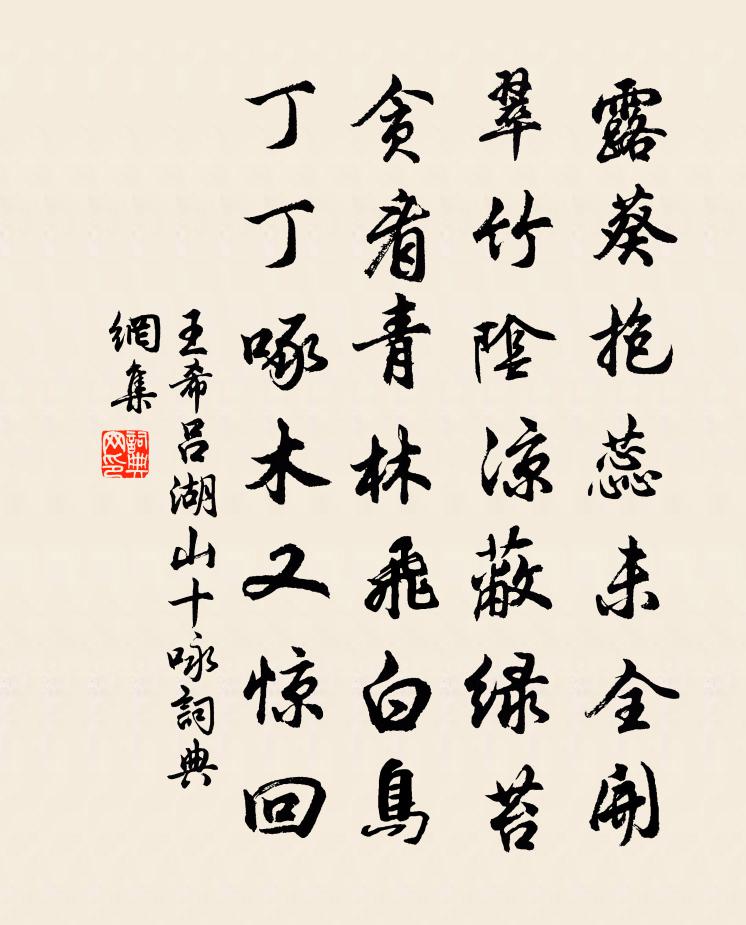 露葵抱蕊未全開
翠竹陰涼蔽緑苔
貪看青林飛白鳥
丁丁啄木又惊回
王希吕湖山十咏詞典
網集
詞典
网印